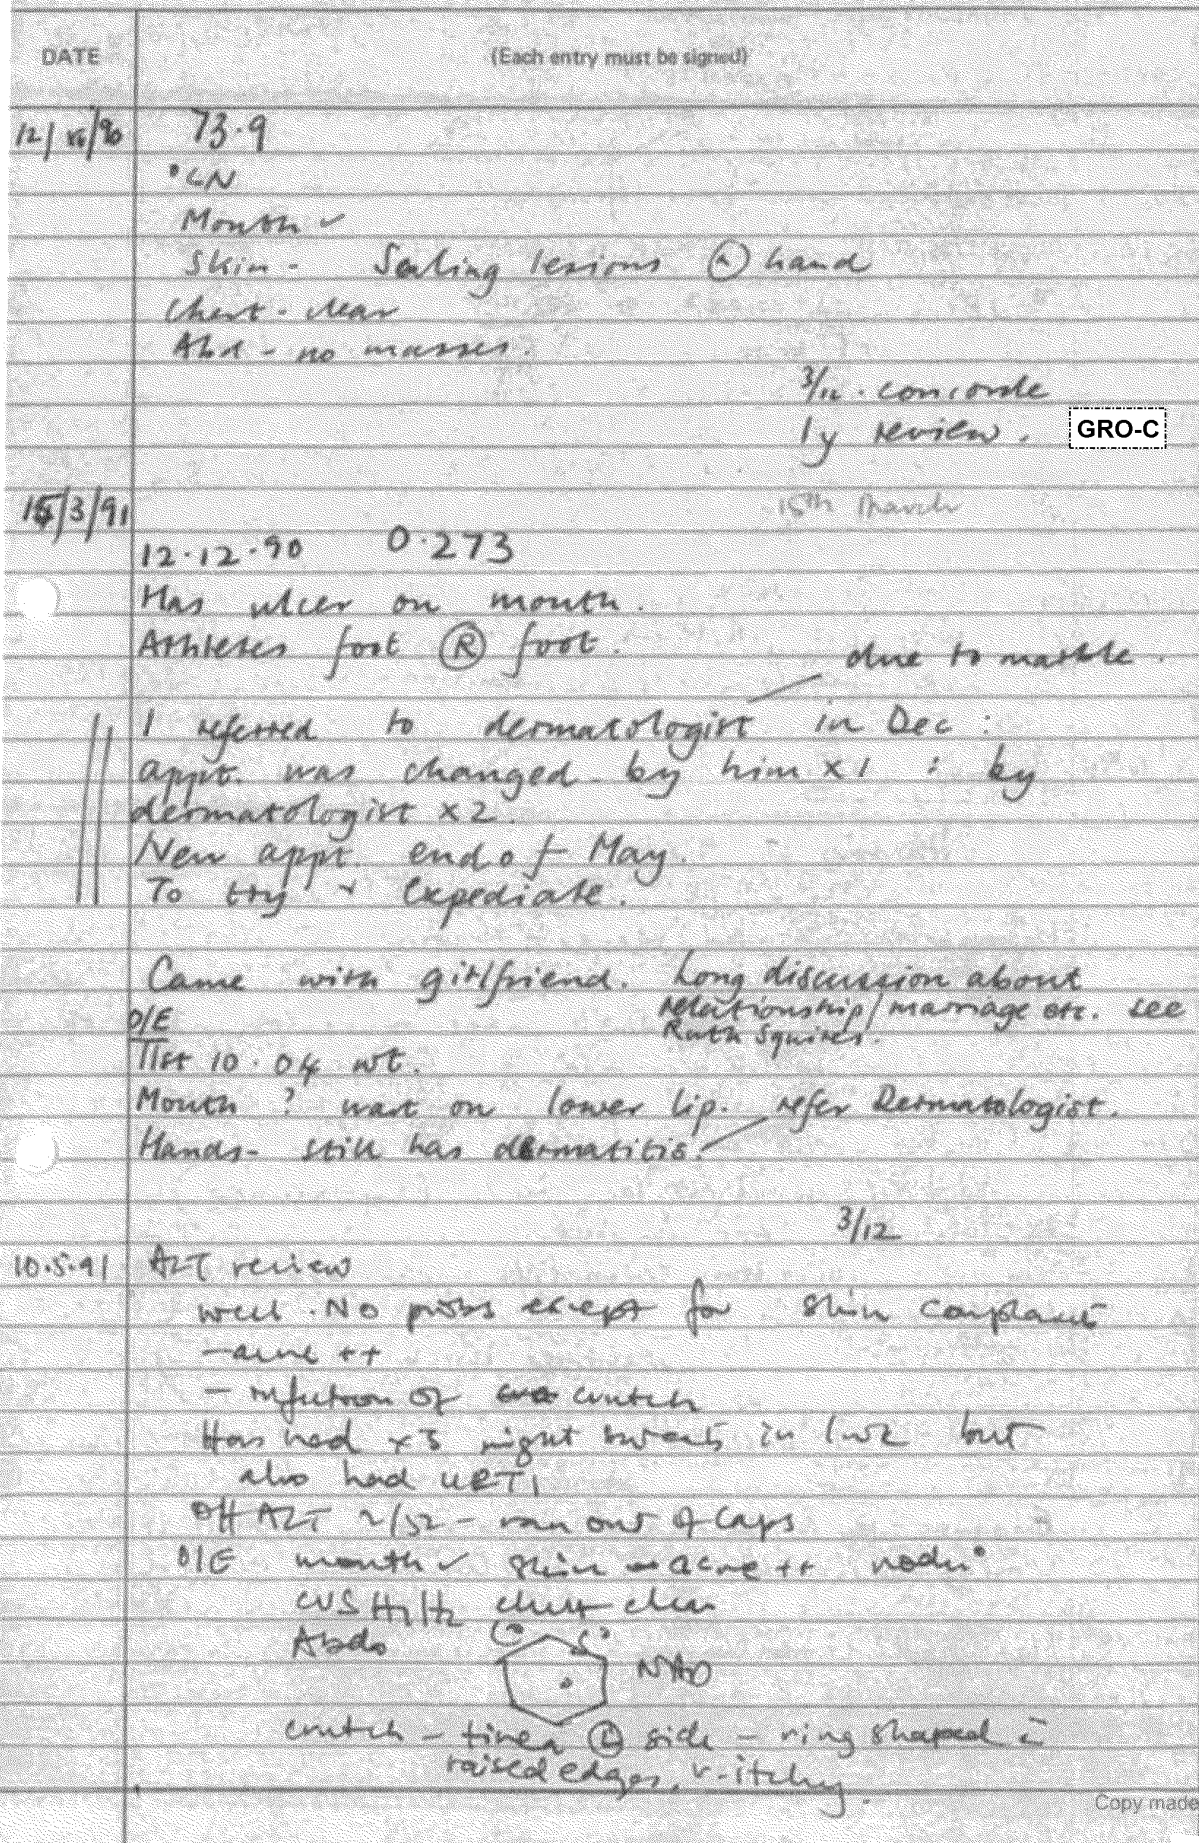 DATE (Each entry must be signed)
12/ /90 73.9
°LN
Mouth ✓
Skin - Scaling lesions hand
Chest - clear
Abd - no masses.
3/12 . concorde
1y review. GRO-C
15/3/91 15th March
12.12.90 0.273
Has ulcer on mouth.
Athletes foot Ⓡ foot.
due to
I referred to dermatologist in Dec :
appt. was changed by him x 1 : by
dermatologist x 2.
New appt. end of May.
To try + Expediate.
Came with girlfriend. Long discussion about
relationship/marriage etc. see
Ruth Squires.
O/E
11st 10 . 04 wt.
Mouth ? wart on lower lip. refer Dermatologist.
Hands - still has dermatitis.
3/12
10.5.91 AZT review
well. No probs except for skin complaint
- acne ++
- infection of crutch
Has had x3 night sweats in 1wk but
also had URTI
AZT 2/52 - ran out of caps
O/E mouth ✓ skin - acne ++ nodes°
CVS H1/H2 chest clear
Abdo NAD
crutch - tinea side - ring shaped c̄
raised edges, v. itchy.
Copy made